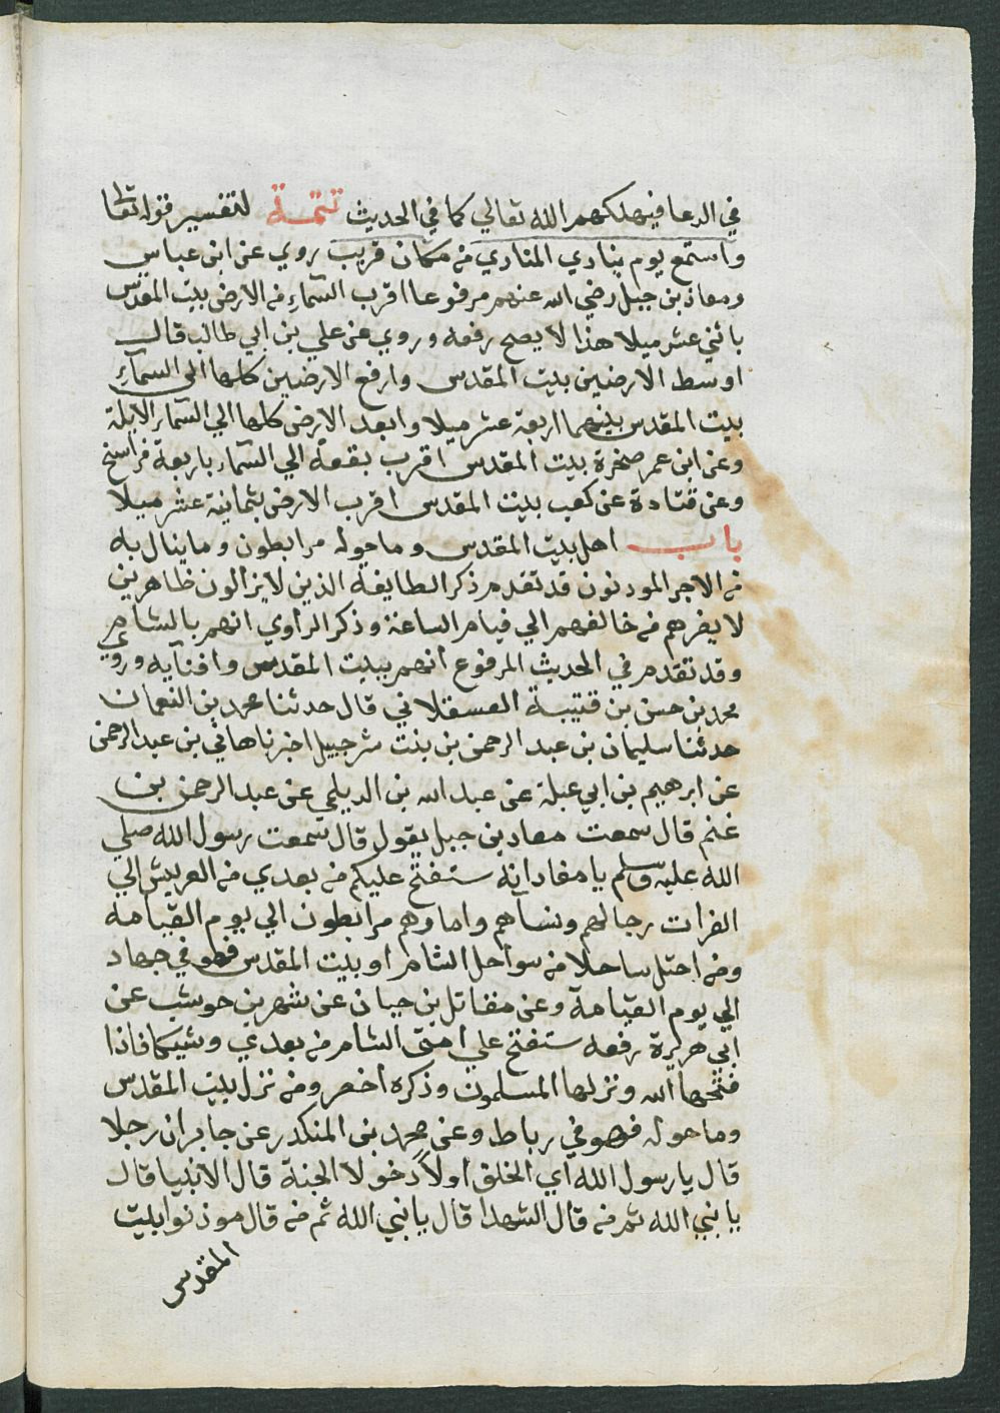 في الدعا فيهلكهم الله تعالي كما في الحديث تتمة لتفسير قوله تعالى
واستمع يوم ينادي المنادي من مكان قريب روي عن ابن عباس
ومعاذ بن جبل رضي الله عنهم مرفوعا اقرب السماء من الارض بيت المقدس
باثني عشر ميلا هذا لا يصح رفعه وروي عن علي بن ابي طالب قال
اوسط الارضين بيت المقدس وارفع الارضين كلها الي السماء
بيت المقدس بينهما اربعة عشر ميلا وابعد الارض كلها الي السماء الابلة
وعن ابن عمر صخرة بيت المقدس اقرب بقعة الي السماء باربعة فراسخ
وعن قتادة عن كعب بيت المقدس اقرب الارض بثمانية عشر ميلا
باب اهل بيت المقدس وما حوله مرابطون وما ينال به
من الاجر المودنون قد تقدم ذكر الطايفة الذين لا يزالون ظاهرين
لا يضرهم من خالفهم الي قيام الساعة وذكر الراوي انهم بالشام
وقد تقدم في الحديث المرفوع انهم ببيت المقدس وافنآيه وروي
محمد بن حسن بن قتيبة العسقلاني قال حدثنا محمد بن النعمان
حدثنا سليمان بن عبد الرحمن بن بنت شرجبيل اخبرنا هاني بن عبد الرحمن
عن ابرهيم بن ابي عبلة عن عبد الله بن الديلمي عن عبد الرحمن بن
غنم قال سمعت معاد بن جبل يقول قال سمعت رسول الله صلي
الله عليه وسلم يا معاد انه ستفتح عليكم من بعدي من العريش الي
الفرات رجالهم ونساهم واماوهم مرابطون الي يوم القيامة
ومن احتل ساحلا من سواحل الشام او بيت المقدس فهو في جهاد
الي يوم القيامة وعن مقاتل بن حيان عن شهر بن حوشب عن
ابي هريرة رفعه ستفتح علي امتي الشام من بعدي وشيكا فاذا
فتحها الله ونزلها المسلمون وذكره اخصر ومن نزل بيت المقدس
وما حوله فهو في رباط وعن محمد بن المنكدر عن جابر ان رجلا
قال يا رسول الله اي الخلق اولاً دخولا الجنة قال الانبيا قال
يا نبي الله ثم من قال الشهدا قال يا نبي الله ثم من قال موذنوا بيت
المقدس